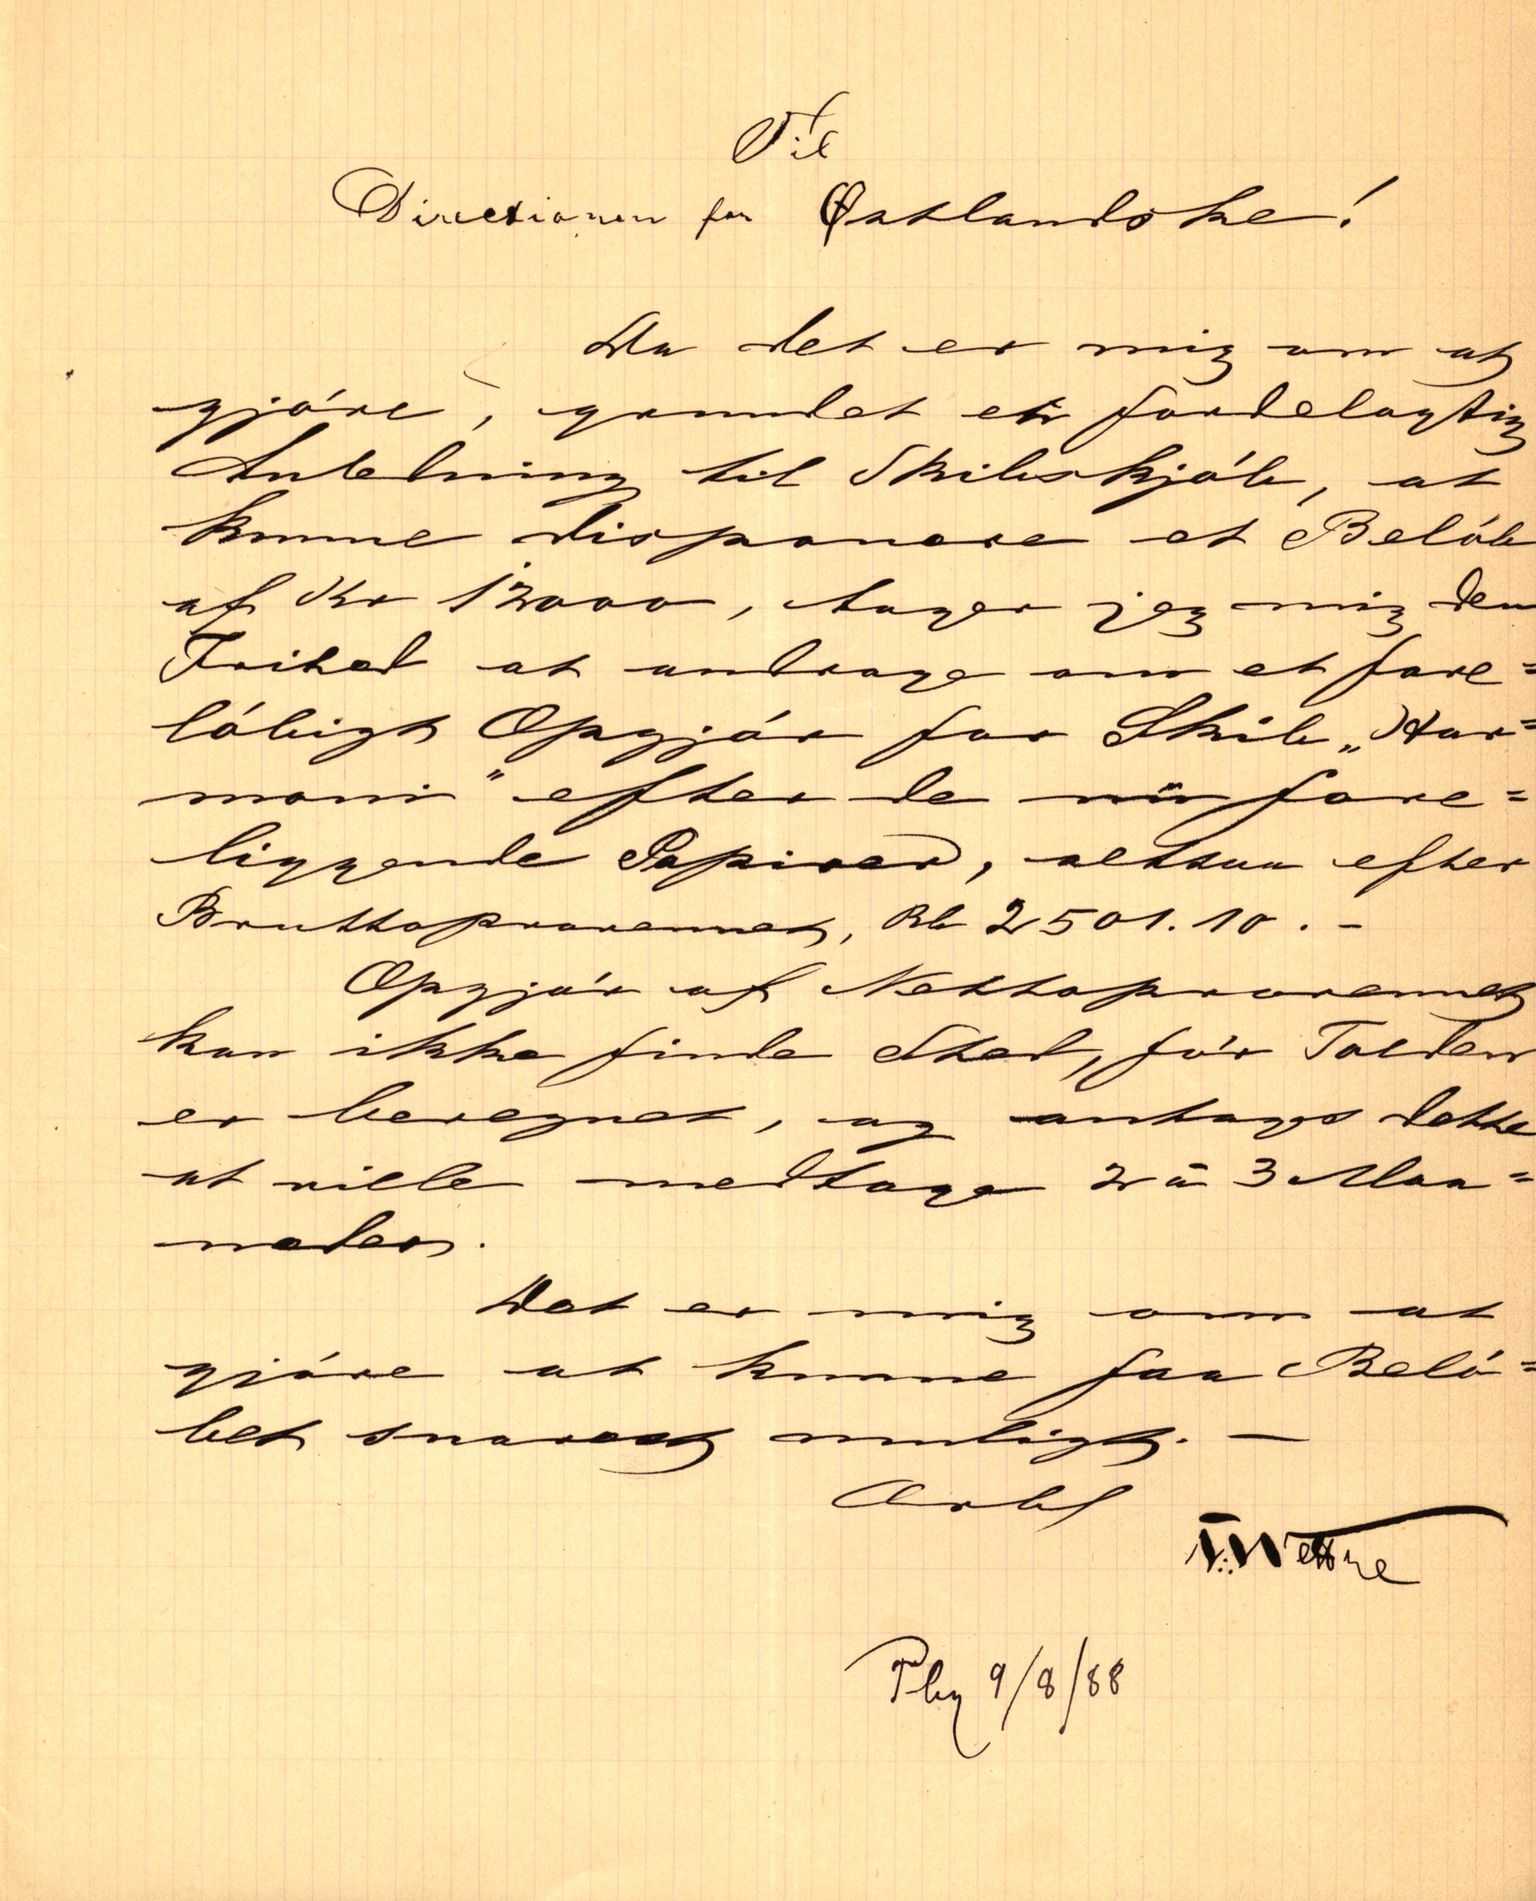 Til
Directionen for Østlandske!
Da det er mig om at
gjóre, grundet en fordelagtig
Anledning til Skibskjób, at
kunne disponere et Belób
af Kr 12000, tager jeg mig den
Frihed at andrage om et fore=
lóbigt Opgjór for Skib „Har=
moni" efter de nu fore=
liggende Papirer, altsaa efter
Bruttoprovenuet, Rb 2501.10.-
Opgjór af Nettoprovenuet
kan ikke finde Sted, fór Tolden
er beregnet, og antages dette
at ville medtage 2 à 3 Maa=
neder.
Det er mig om at
gjóre at kunne faa Beló=
bet snarest muligt. —
Ærb
Wettre
Pbg 9/8/88